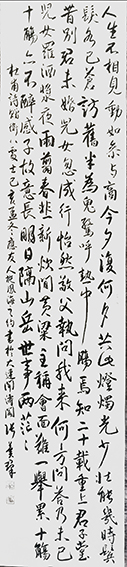 人生不相見動如參与商今夕復何夕共此燈燭光少壯能幾時鬢
髮各已蒼訪舊半為鬼驚呼熱中腸焉知二十載重上君子堂
昔別君未婚兒女忽成行怡然敬父執問我来何方問答乃未已
兒女羅酒漿夜雨剪春韭新炊間黃粱主稱會面難一舉累十觴
十觴亦不醉感子故意長明日隔山岳世事兩茫茫
杜甫詩贈衛八處士